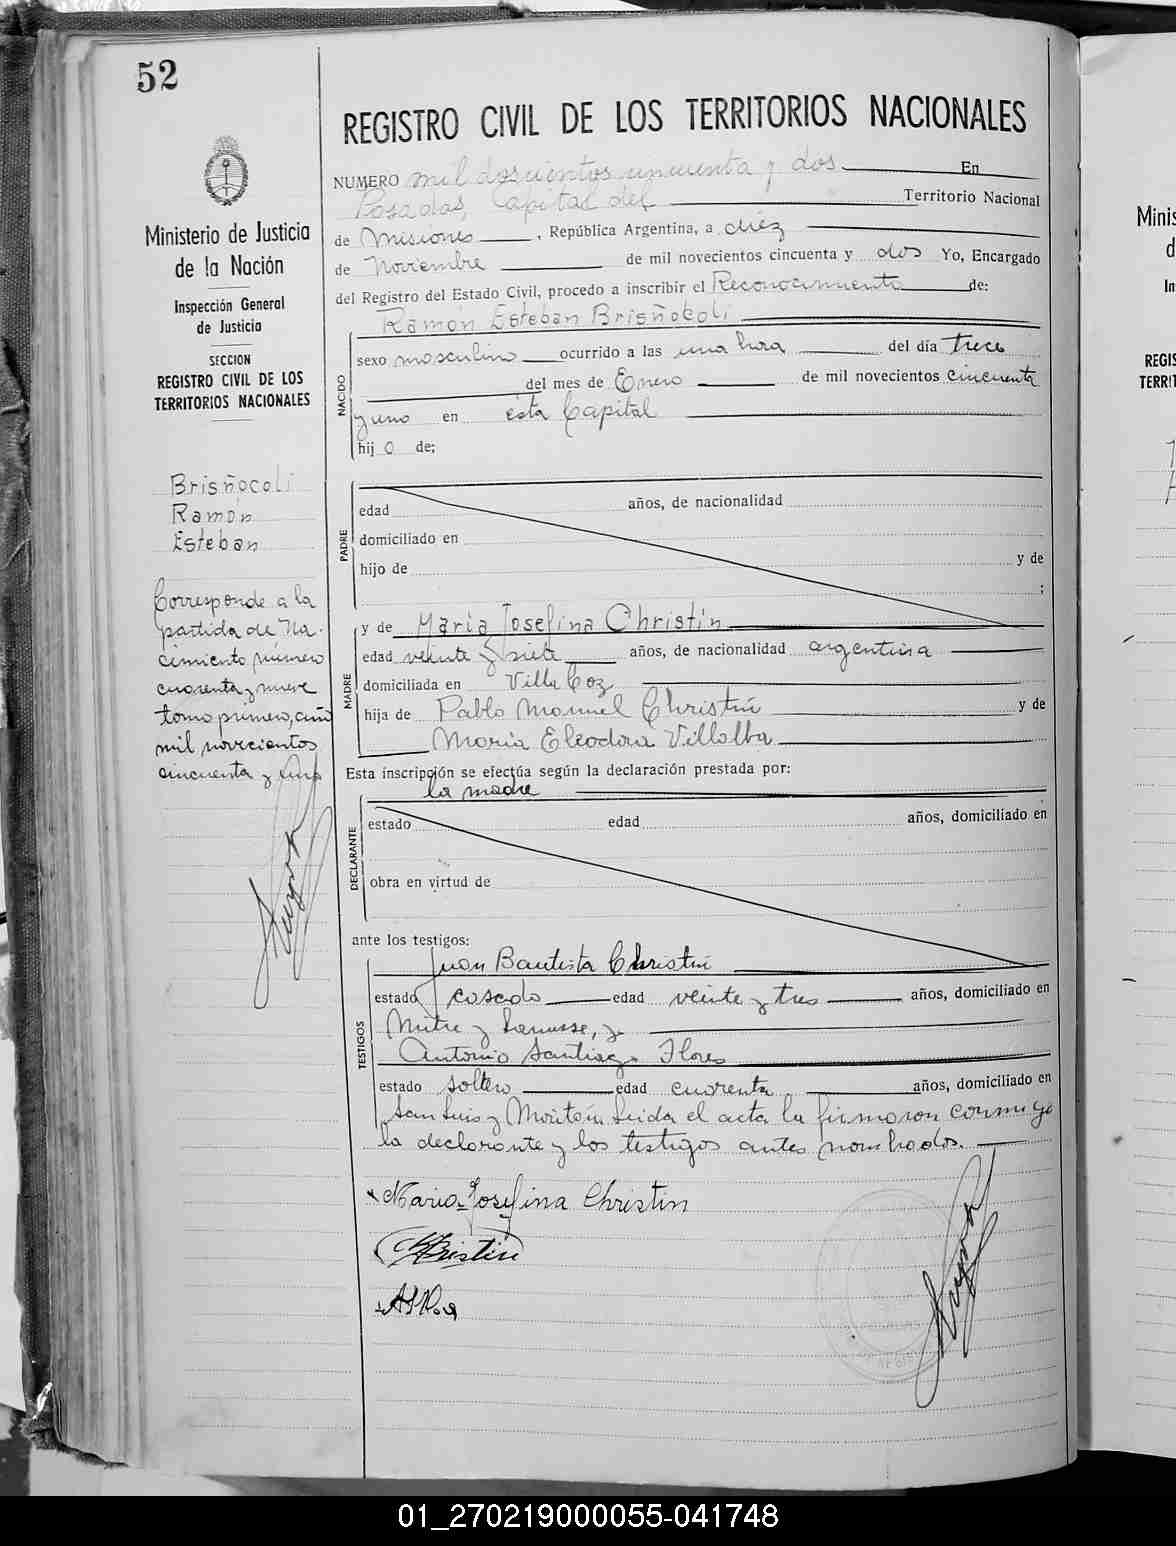 52
REGISTRO CIVIL DE LOS TERRITORIOS NACIONALES
NUMERO mil doscientos cincuenta y dos En
Posadas, Capital del Territorio Nacional
de Misiones, República Argentina, a diéz
de Noviembre de mil novecientos cincuenta y dos Yo, Encargado
del Registro del Estado Civil, procedo a inscribir el Reconocimiento de:
Ramón Esteban Brisñocoli
NACIDO
sexo masculino ocurrido a las una hora del día trece
del mes de Enero de mil novecientos cincuenta
y uno en ésta Capital
hij o de:
PADRE
edad años, de nacionalidad
domiciliado en
hijo de y de
;
MADRE
y de María Josefina Christin
edad veinte y siete años, de nacionalidad argentina
domiciliada en Villa Coz
hija de Pablo Manuel Christin y de
María Eleodora Villalba
Esta inscripción se efectúa según la declaración prestada por:
la madre
DECLARANTE
estado edad años, domiciliado en
obra en virtud de
ante los testigos:
TESTIGOS
Juan Bautista Christin
estado casado edad veinte y tres años, domiciliado en
Mitre y Lanusse, y
Antonio Santiago Flores
estado soltero edad cuarenta años, domiciliado en
San Luis y Leida el acta la firmaron conmigo
la declarante y los testigos antes nombrados.
Maria Josefina Christin
Christin
Ministerio de Justicia
de la Nación
Inspección General
de Justicia
SECCION
REGISTRO CIVIL DE LOS
TERRITORIOS NACIONALES
Brisñocoli
Ramón
Esteban
Corresponde a la
partida de Na-
cimiento número
cuarenta y nueve
tomo primero, año
mil novecientos
cincuenta y uno
Minis
d
In
REGIS
TERRIT
01_270219000055-041748